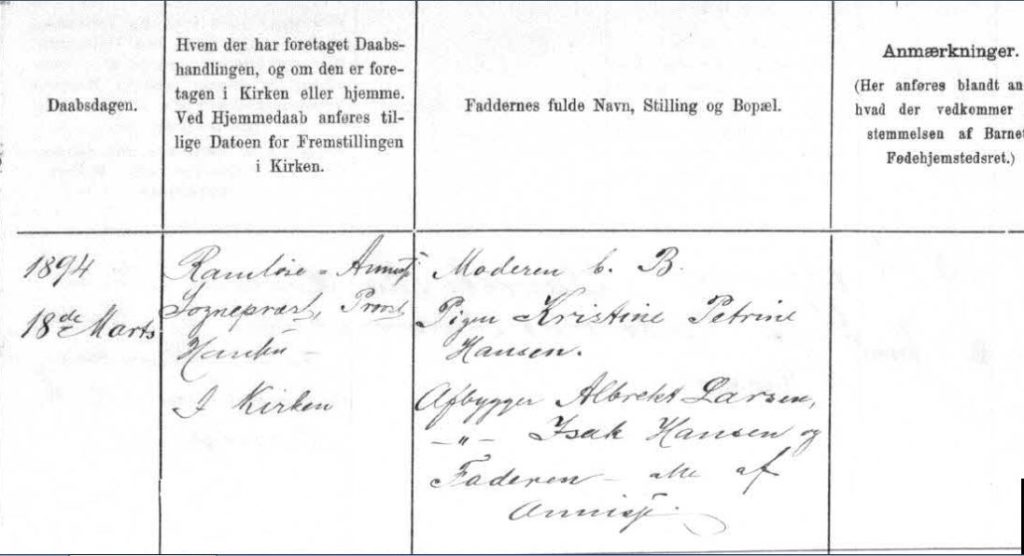 Daabsdagen.
Hvem der har foretaget Daabs-
handlingen, og om den er fore-
tagen i Kirken eller hjemme.
Ved Hjemmedaab anføres til-
lige Datoen for Fremstillingen
i Kirken.
Faddernes fulde Navn, Stilling og Bopæl.
Anmærkninger.
(Her anføres blandt an
hvad der vedkommer
stemmelsen af Barnet
Fødehjemstedsret.)
1894
18de Marts
Ramløse - Annisse
Sognepræst, Provst
I Kirken
Moderen b. B.
Pigen Kristine Petrine
Hansen.
Afbygger Albrekt Larsen,
-"- Isak Hansen og
Faderen - alle af
Annisse.